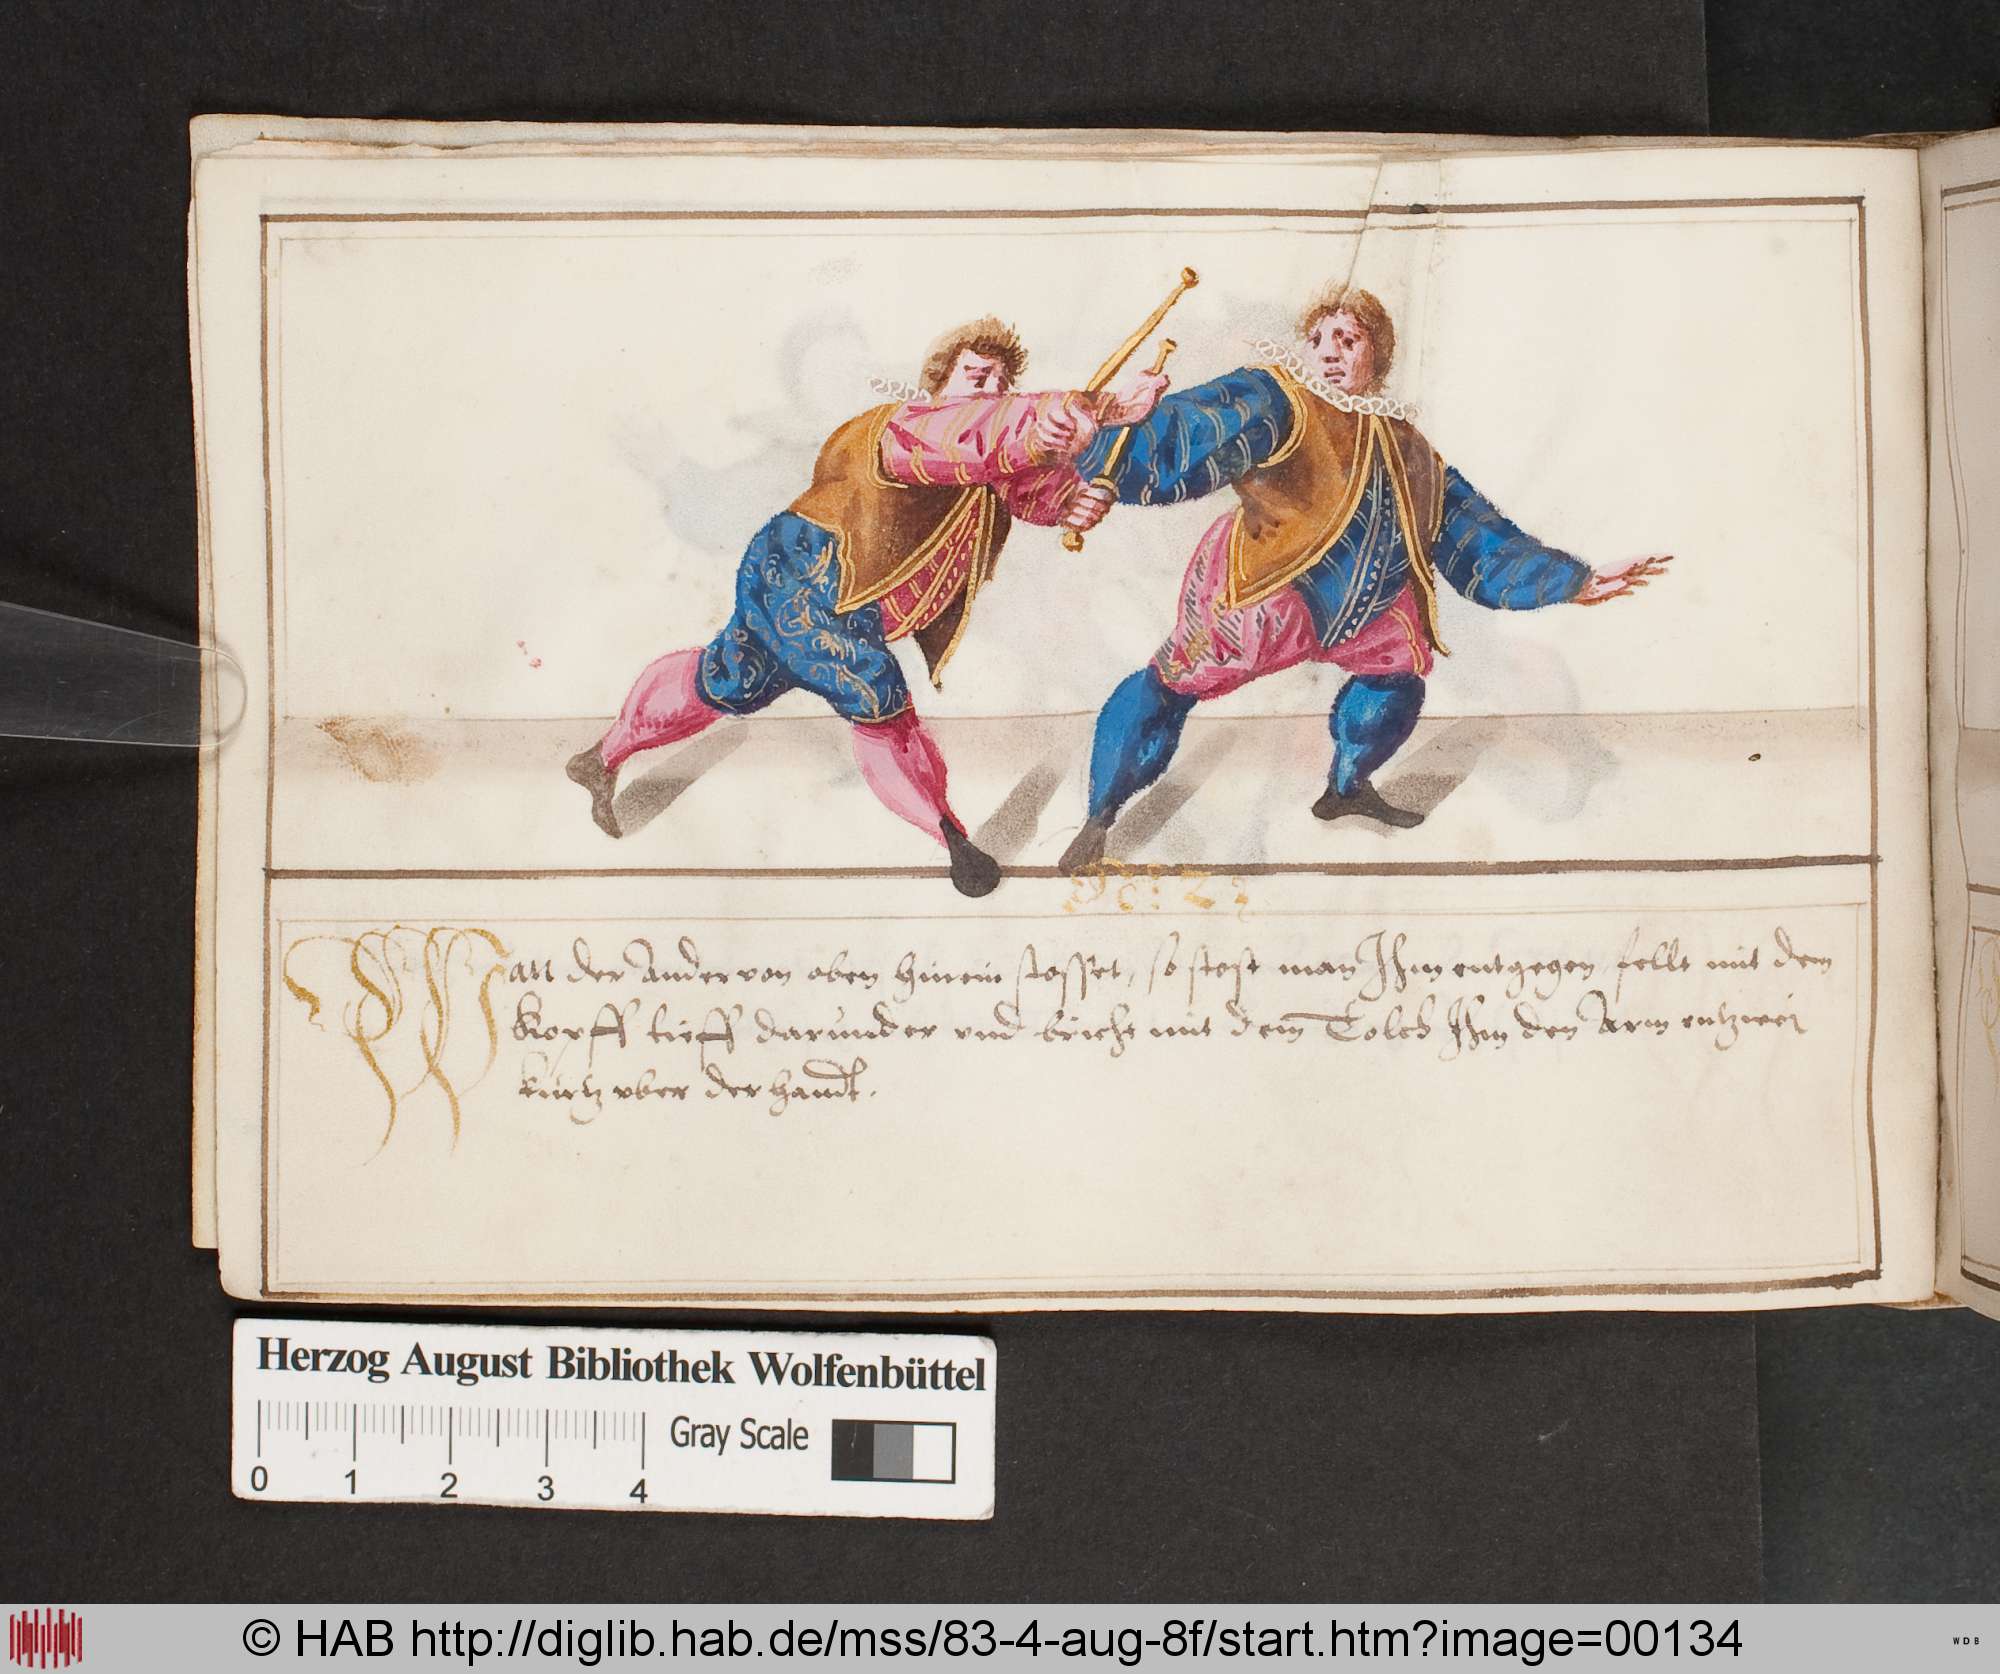 Wan der Ander von oben hinein stosset, so stost man Ihm entgegen fellt mit dem
Kopff tieff darunder vnd bricht mit dem Tolch Ihm den Arm entzwei
kurtz vber der handt.
Herzog August Bibliothek Wolfenbüttel
Gray Scale
0 1 2 3 4
© HAB http://diglib.hab.de/mss/83-4-aug-8f/start.htm?image=00134
WDB